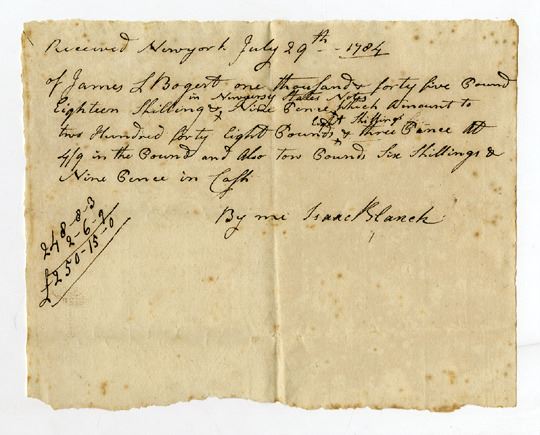 Received Newyork July 29th - 1784
of James L Bogert one thousand & forty five Pound
in Newjersy States Notes
Eighteen Shilling & Nine Pence which Amount to
Eight Shilling
two Hundred forty Eight Pounds & three Pence At
4/9 in the Pound and Also tow Pounds Six Shillings &
Nine Pence in Cash
By me Isaac Blanch
248-8-3
2-6-9
£250-15-0